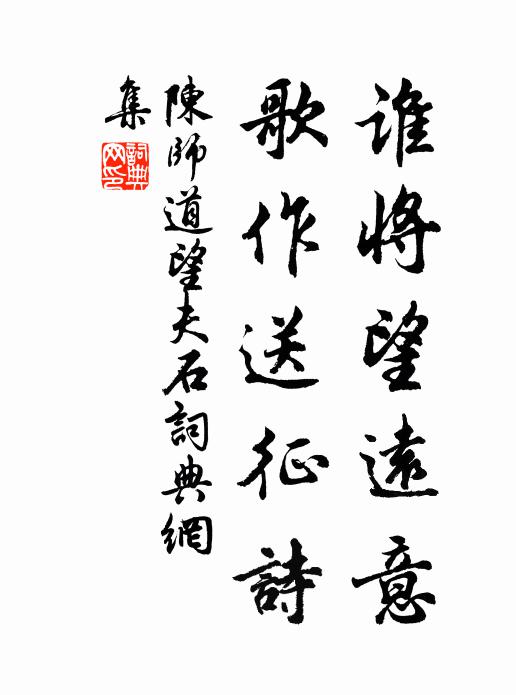 誰將望遠意
歌作送征詩
陳師道望夫石詞典網
集
詞典
网印